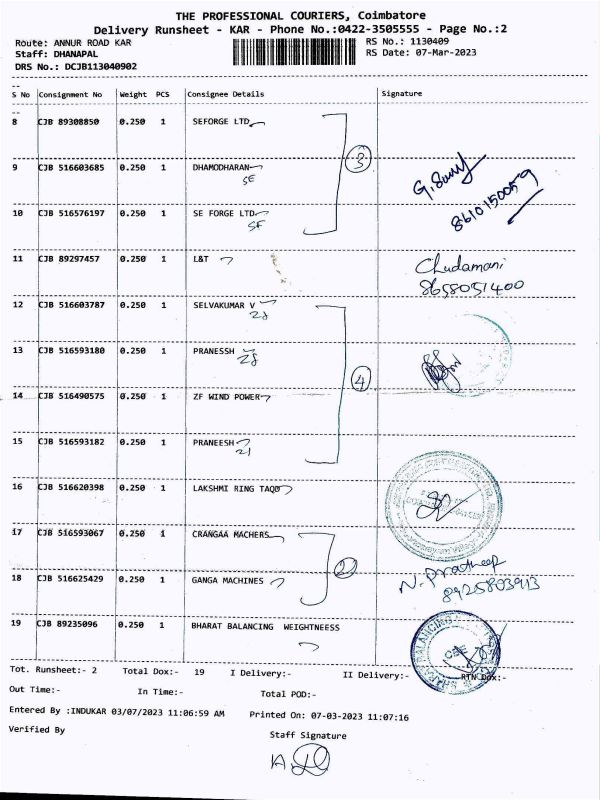 THE PROFESSIONAL COURIERS, Coimbatore
Delivery Runsheet - KAR - Phone No.:0422-3505555 - Page No.:2
Route: ANNUR ROAD KAR
RS No.: 1130409
Staff: DHANAPAL
RS Date: 07-Mar-2023
DRS No.: DCJB113040902
S No Consignment No Weight PCS Consignee Details Signature
8 CJB 89308850 0.250 1 SEFORGE LTD
9 CJB 516603685 0.250 1 DHAMODHARAN
SE
3
8610150059
10 CJB 516576197 0.250 1 SE FORGE LTD
SF
11 CJB 89297457 0.250 1 L&T
Chudamani
8658051400
12 CJB 516603787 0.250 1 SELVAKUMAR V
13 CJB 516593180 0.250 1 PRANESSH
4
14 CJB 516490575 0.250 1 ZF WIND POWER
15 CJB 516593182 0.250 1 PRANEESH
16 CJB 516620398 0.250 1 LAKSHMI RING TAQO
17 CJB 516593067 0.250 1 CRANGAA MACHERS
2
N. Pradheep
8925803913
18 CJB 516625429 0.250 1 GANGA MACHINES
19 CJB 89235096 0.250 1 BHARAT BALANCING WEIGHTNEESS
Tot. Runsheet:- 2 Total Dox:- 19 I Delivery:- II Delivery:- RTN Dox:-
Out Time:- In Time:- Total POD:-
Entered By :INDUKAR 03/07/2023 11:06:59 AM Printed On: 07-03-2023 11:07:16
Verified By
Staff Signature